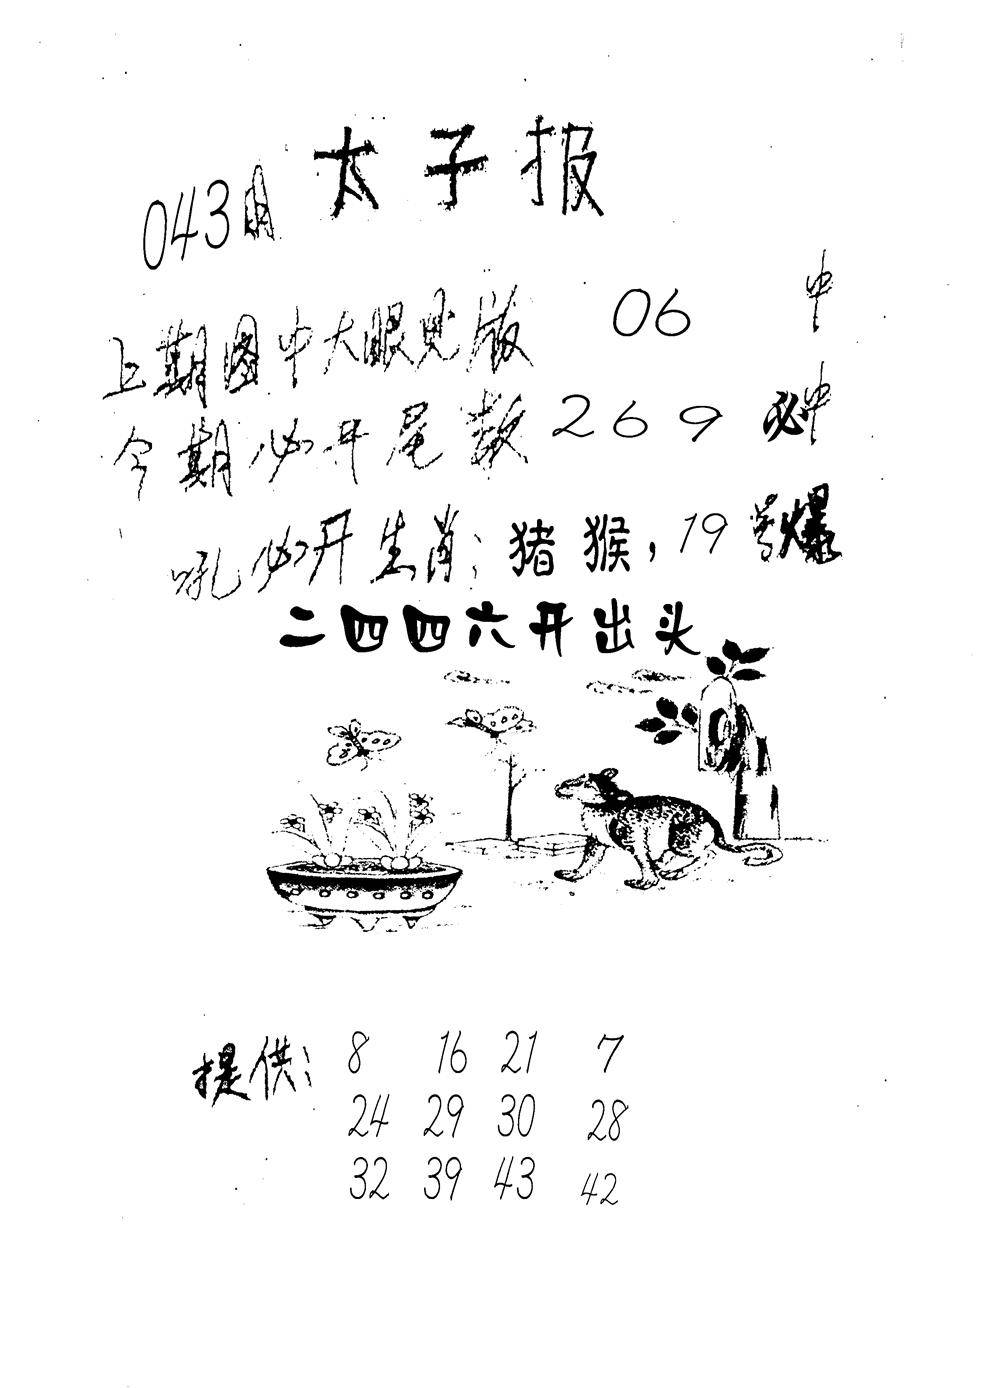 太子报
043期
上期图中大眼见版 06 中
今期必开尾数 269 必中
吼必开生肖：猪猴，19号爆
二四四六开出头
提供： 8 16 21 7
24 29 30 28
32 39 43 42